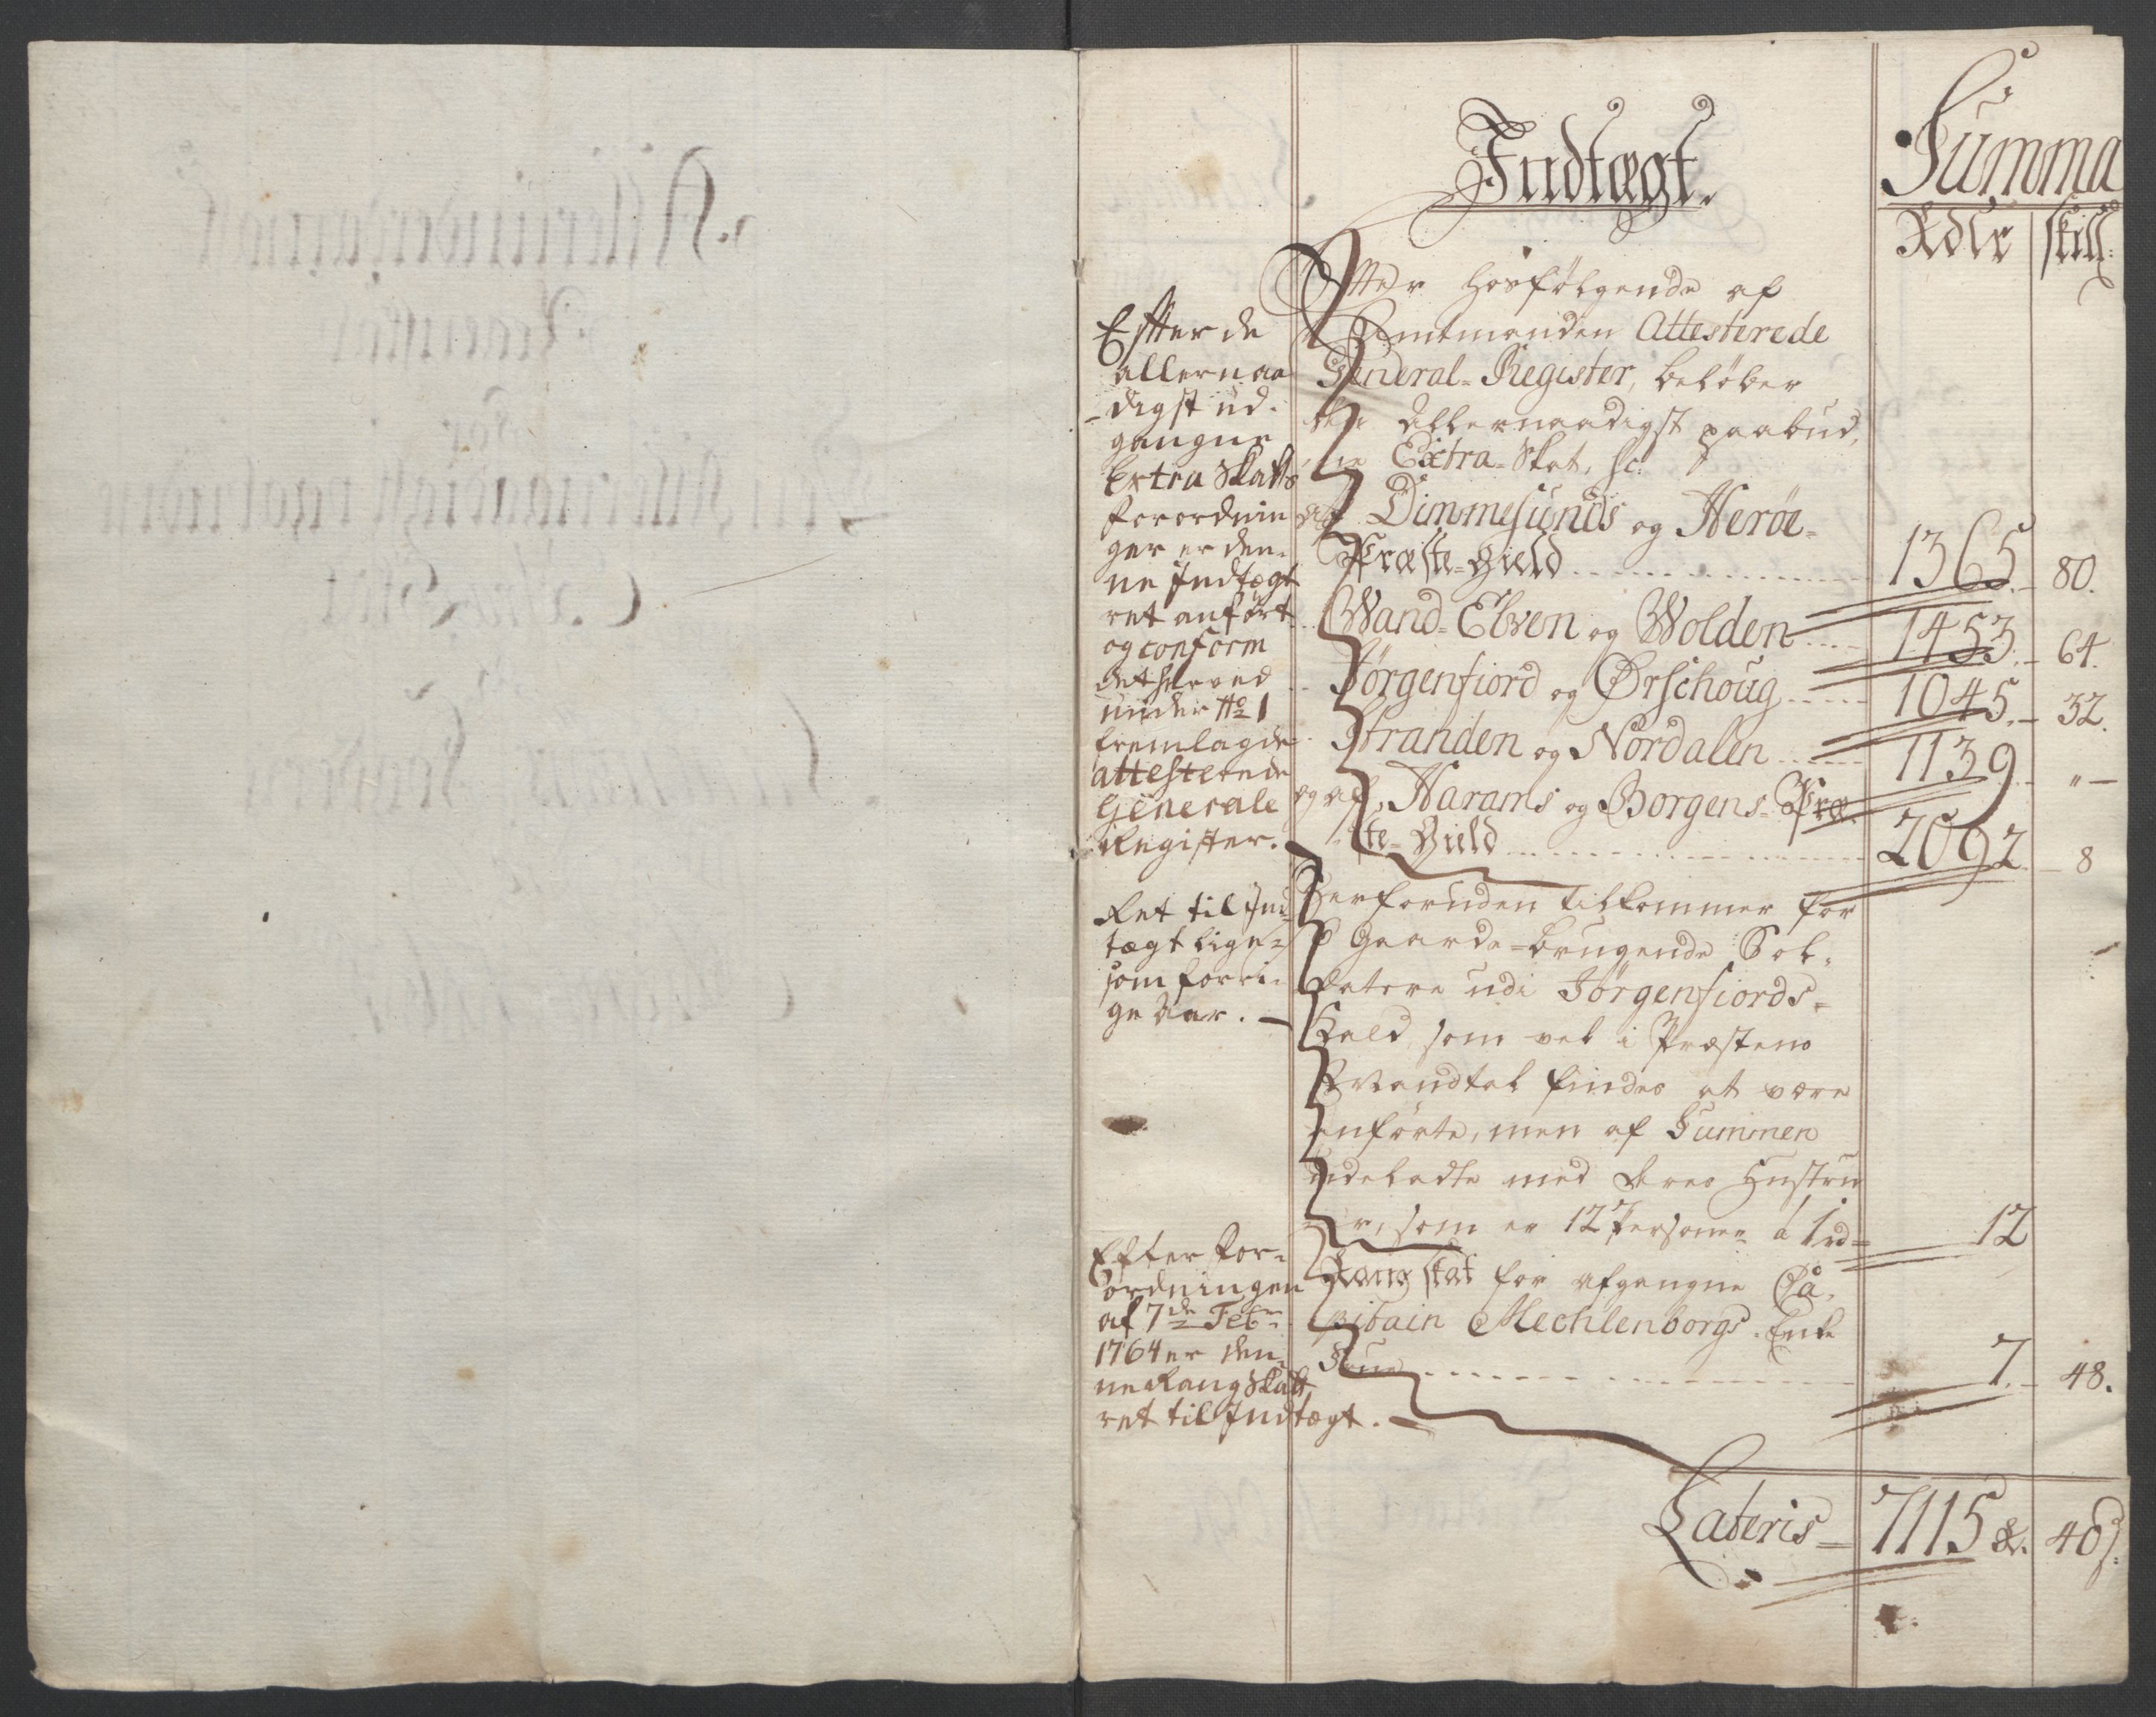 Indtægt.
Summa
Rdlr skill:
Efter de
allernaa
digst ud-
gangne
Extra Skatts
forordnin
ger er den-
ne Indtægt
ret anført
og conform
det herved
under No 1
fremlagde
attesterede
Generale
Register.
Efter hosfølgende af
Amtmanden Attesterede
General-Register, beløber
den Allernaadigst paabud,
ne Extra-Skat, sc:
af Dimmesunds og Herøe-
Præste-Gield 1365 80.
Wand-Elven og Wolden 1453 64.
Jørgenfiord og Ørschoug 1045 32.
Stranden og Nordalen 1139 "
og af Harams og Borgens-Præ
ste-Gield 2092 8
Ret til Ind
tægt lige-
som forri-
ge Aar.
Herforuden tilkommer for
6 Gaarde-brugende Sol-
datere udi Jørgenfiords-
Kald, som vel i Præstens
Mandtal findes at være
anførte, men af Summen
udeladte med deres Hustru
er, som er 12 Personer á 1 rd 12
Efter for-
ordningen
af 7de Febr
1764 er den-
ne Rang Skatt
ret til Indtægt.
Rang skat for afgangne Ca-
pitain Mechlenborgs Enke
Frue 7 48.
Lateris 7115 r. 40 s: